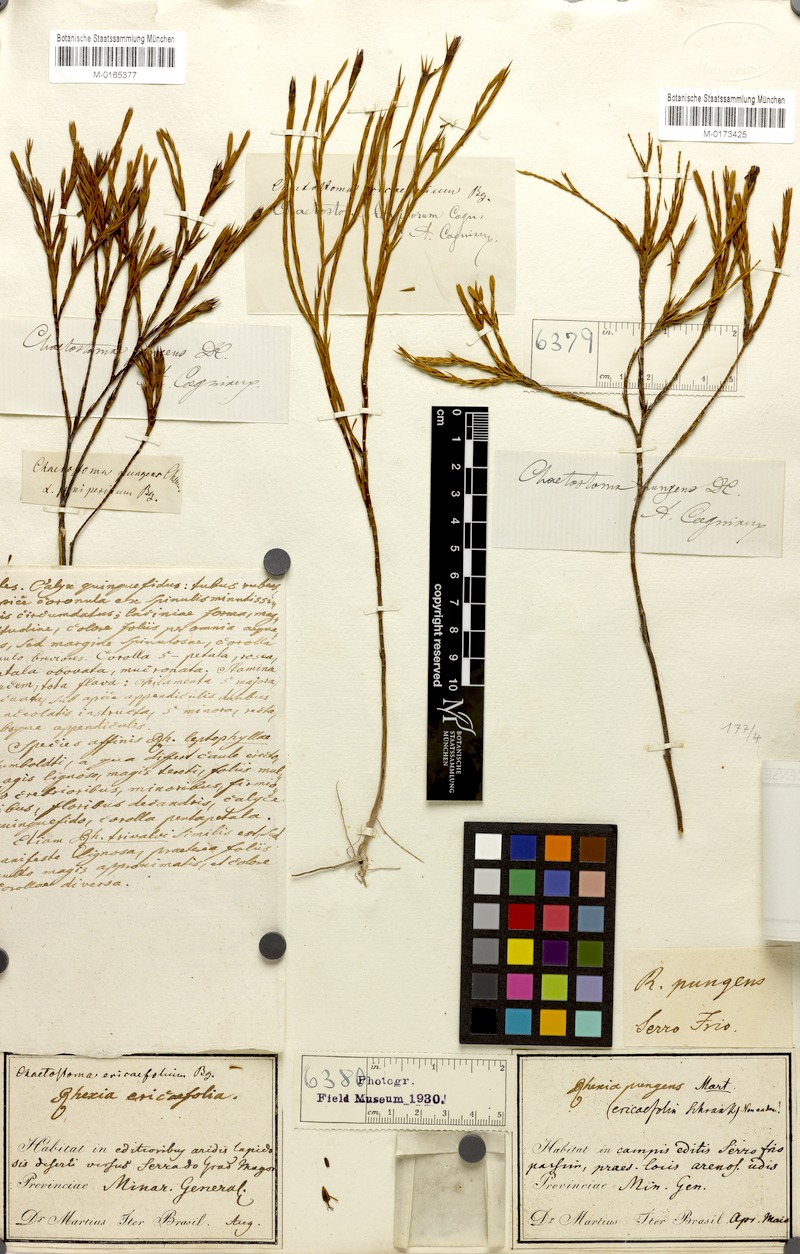 Botanische Staatssammlung München
M-0165377
Botanische Staatssammlung München
M-0173425
Chaetostoma ericaefolium Bg.
Chaetostoma Cogn.
A. Cogniaux
6379
in.
1
2
cm
1
4
5
Chaetostoma pungens DC.
A. Cogniaux
Chaetostoma pungens
Bg.
Chaetostoma pungens DC.
A. Cogniaux
0
cm
1
2
3
4
5
6
7
8
9
10
copyright reserved
BOTANISCHE
STAATSSAMMLUNG
MÜNCHEN
Calyx quinquefidus: tubus
coronula etc spinulis minutissi
is circumdatus; laciniae forma, mag
itudine, colore foliis per omnia aequa
s, sed margine spinulosae, corolla
Corolla 5-petala, rosea,
etala obovata, mucronata. Stamina
ecem, tota flava: filamenta 5 majora
appendiculis duabus
nceolatis instructa, 5 minora, recta,
absque appendiculis.
Species affinis Rh. leptophyllae
umboldti, a qua differt caule erecto,
agis lignoso, magis tereti, foliis mul
o crebrioribus, minoribus, firmio
ibus, floribus decandris, calyce
quinquefido, corolla pentapetala.
Etiam Rh. trivalvi similis est, sed
anifeste lignosa, praeterea foliis
multo magis approximatis, et colore
corollae diversa.
177/4
R. pungens
Serro Frio.
Chaetostoma ericaefolium Bg.
Rhexia ericaefolia.
Habitat in editioribus aridis lapido
sis deserti versus Serra do Grao Magor
Provinciae Minar. General.
Dr Martius Iter Brasil. Aug.
6380
Photogr.
Field Museum 1930.
in.
1
2
cm
1
2
3
4
5
Rhexia pungens Mart.
(ericaefolia Schrank)
Habitat in campis editis Serro frio
passim, praes. locis arenos. udis
Provinciae Min. Gen.
Dr Martius Iter Brasil. Apr. Maio